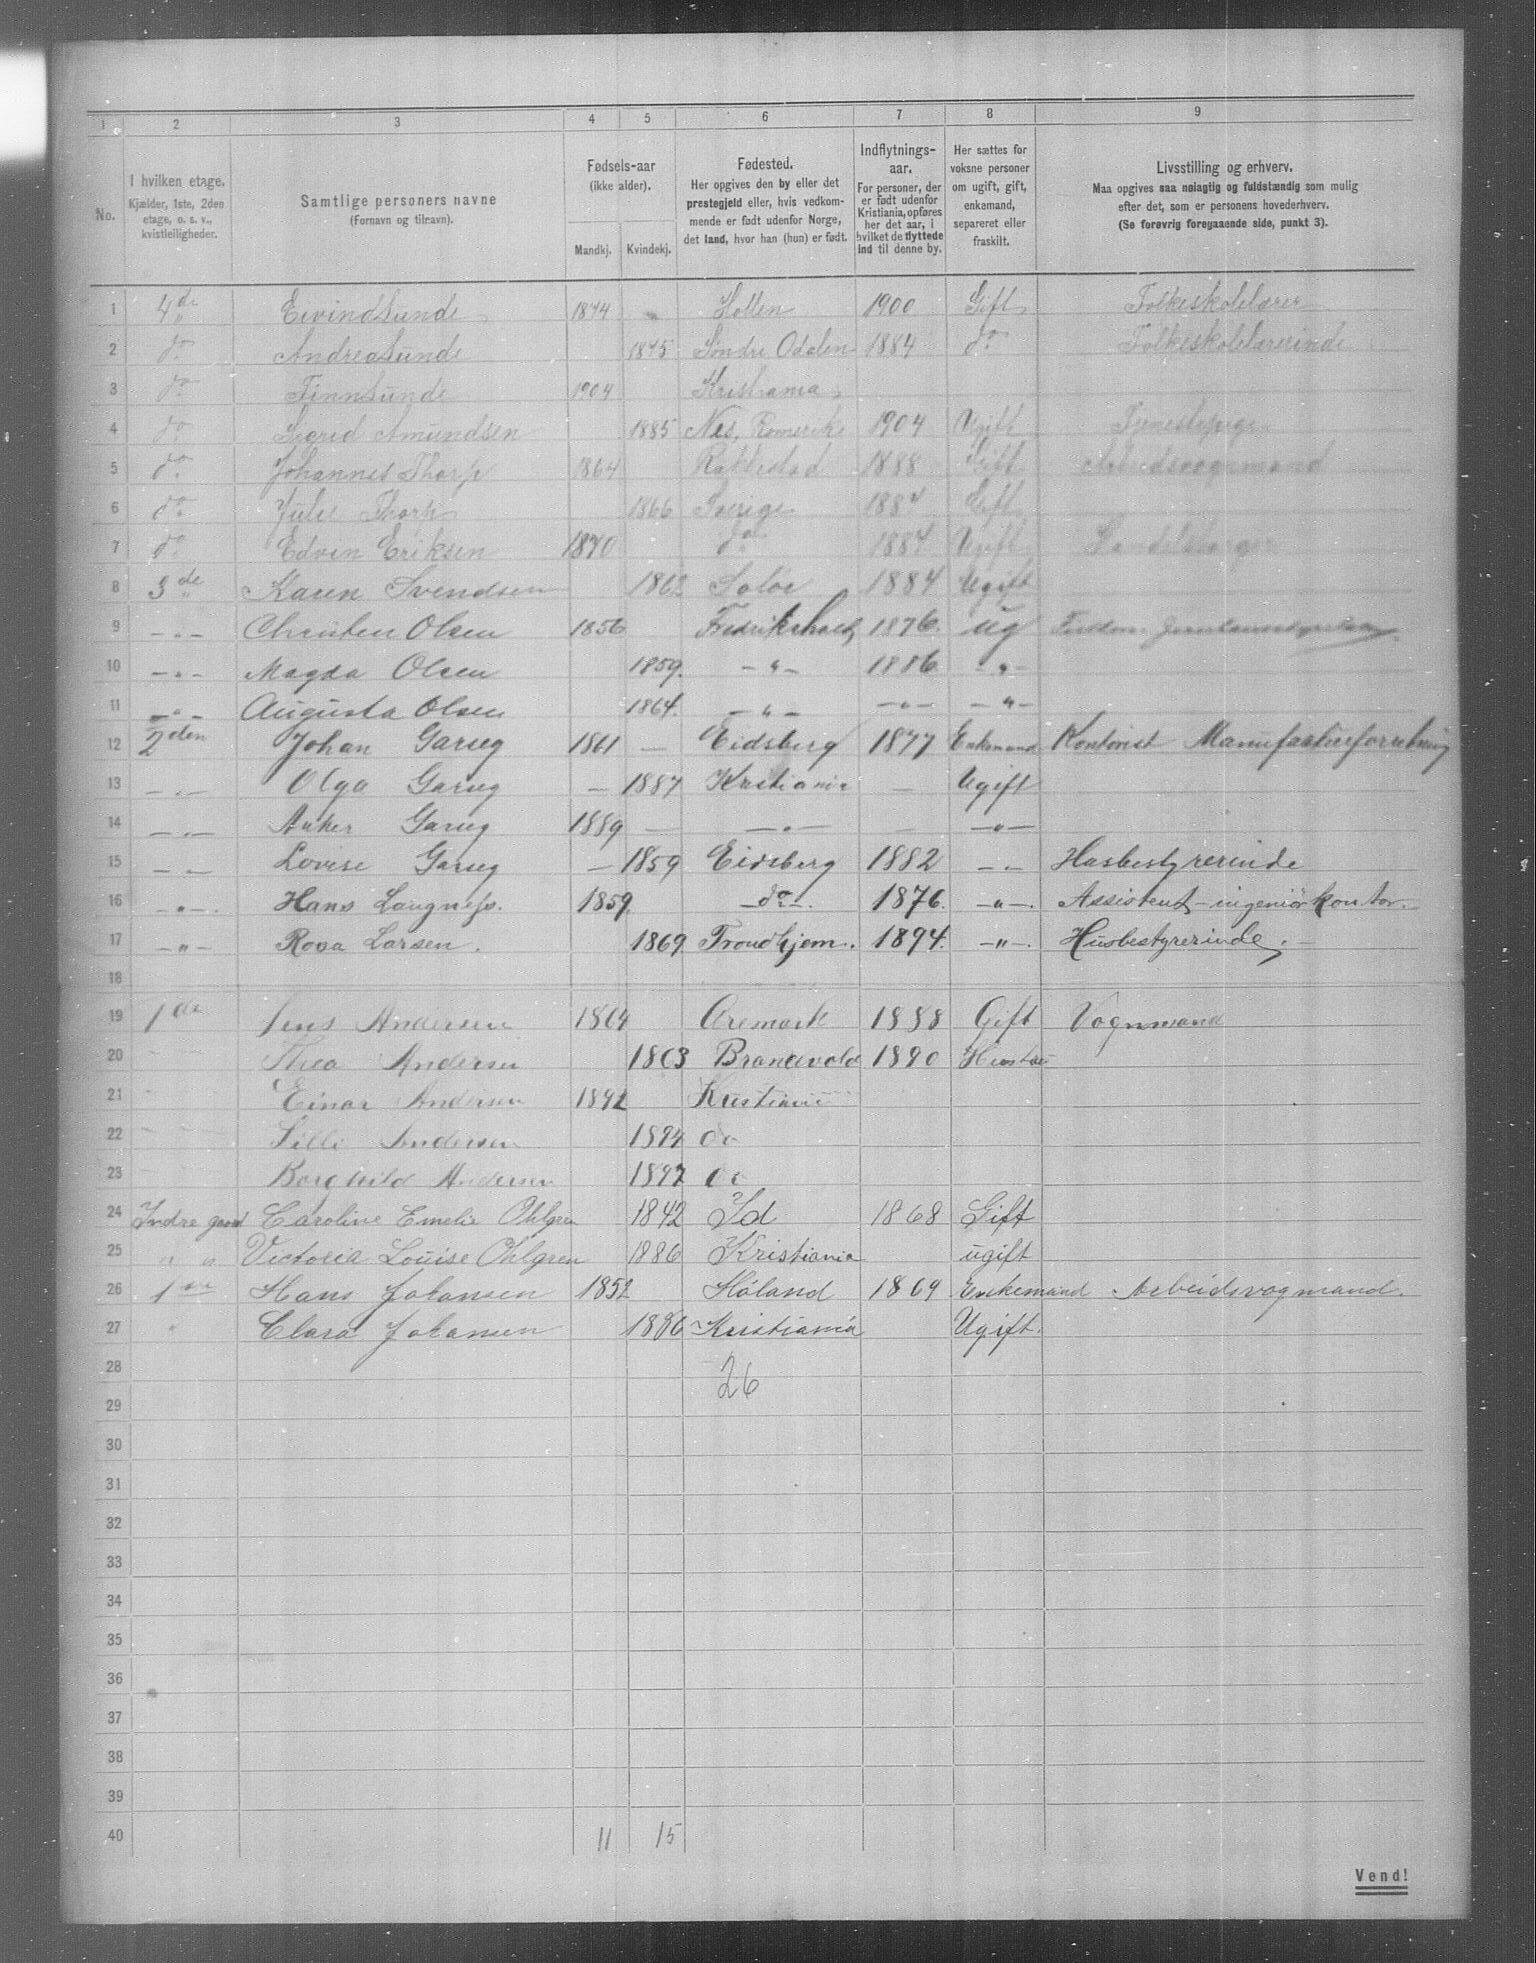 1 2 3 4 5 6 7 8 9
No. I hvilken etage. Kjælder, 1ste, 2den etage, o. s. v., kvistleiligheder.
Samtlige personers navne (Fornavn og tilnavn).
Fødsels-aar (ikke alder). Mandkj. Kvindekj.
Fødested. Her opgives den by eller det prestegjeld eller, hvis vedkommende er født udenfor Norge, det land, hvor han (hun) er født.
Indflytnings-aar. For personer, der er født udenfor Kristiania, opføres her det aar, i hvilket de flyttede ind til denne by.
Her sættes for voksne personer om ugift, gift, enkemand, separeret eller fraskilt.
Livsstilling og erhverv. Maa opgives saa nøiagtig og fuldstændig som mulig efter det, som er personens hovederhverv. (Se forøvrig foregaaende side, punkt 3).
1 4de Eivind Sunde 1874 Holten 1900 Gift Folkeskolelærer
2 do Andrea Sunde 1875 Søndre Odalen 1884 do Folkeskolelærerinde
3 do Finn Sunde 1904 Kristiania
4 do Sigrid Amundsen 1885 Nes, Romerike 1904 Ugift Tjenestepige
5 do Johannes Thorp 1864 Rakkestad 1888 Gift Arbeidsvognmand
6 do Julie Thorp 1866 Sverige 1887 Gift
7 do Edvin Eriksen 1870 do 1887 Ugift
8 3de Karen Svendsen 1862 Soløer 1884 Ugift
9 - " - Christen Olsen 1856 Fredrikshald 1876. ug
10 - " - Magda Olsen 1859. - " - 1886 - " -
11 - " - Augusta Olsen 1864. - " - - " - - " -
12 2den Johan Garseg 1861 — Eidsberg 1877 Enkemand Kontorist Manufakturforretning
13 - " - Olga Garseg — 1887 Kristiania — Ugift
14 - " - Anker Garseg 1889 — - " - — - " -
15 - " - Lovise Garseg — 1859 Eidsberg 1882 - " - Husbestyrerinde
16 - " - Hans Langness. 1859. - do - 1876. - " - Assistent - ingeniørkontor.
17 - " - Rosa Larsen. 1869 Trondhjem. 1894. - " - Husbestyrerinde.
18
19 1ste Jens Andersen 1864 Aremark 1888 Gift Vognmand
20 Thea Andersen 1863 Brandvold 1890 Hustru
21 Einar Andersen 1892 Kristiania
22 Lilli Andersen 1894 do
23 Borghild Andersen 1897 do
24 Indre gaard Caroline Emelie Ohlgren 1842 Id 1868 Gift
25 " " Victoria Louise Ohlgren 1886 Kristiania ugift
26 1ste Hans Johansen 1852 Høland 1869 Enkemand Arbeidsvogmand.
27 " Clara Johansen 1886 Kristiania Ugift.
28 26
29
30
31
32
33
34
35
36
37
38
39
40 11 15
Vend!